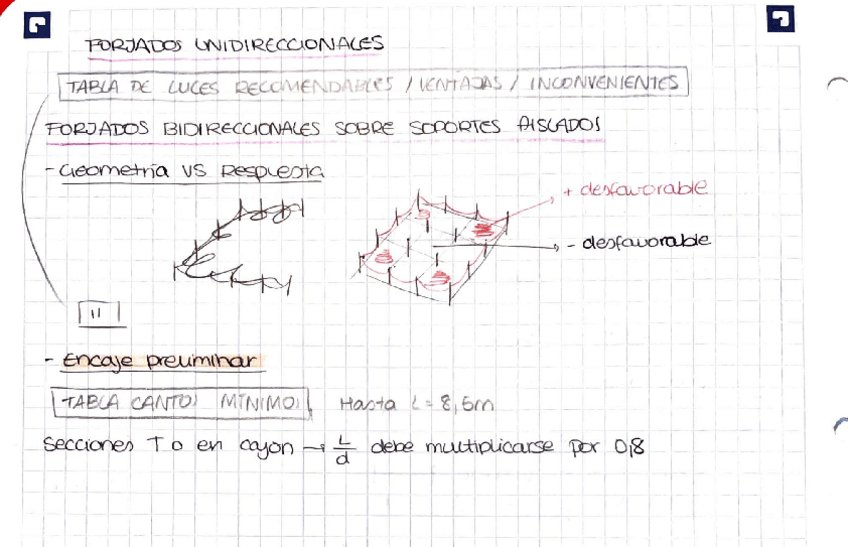 FORJADOS UNIDIRECCIONALES
TABLA DE LUCES RECOMENDABLES / VENTAJAS / INCONVENIENTES
FORJADOS BIDIRECCIONALES SOBRE SOPORTES AISLADOS
- Geometría VS Respuesta
+ desfavorable
- desfavorable
"
- Encaje preliminar
TABLA CANTOS MÍNIMOS Hasta L = 8,5m
Secciones T o en cajon → L/d debe multiplicarse por 0,8